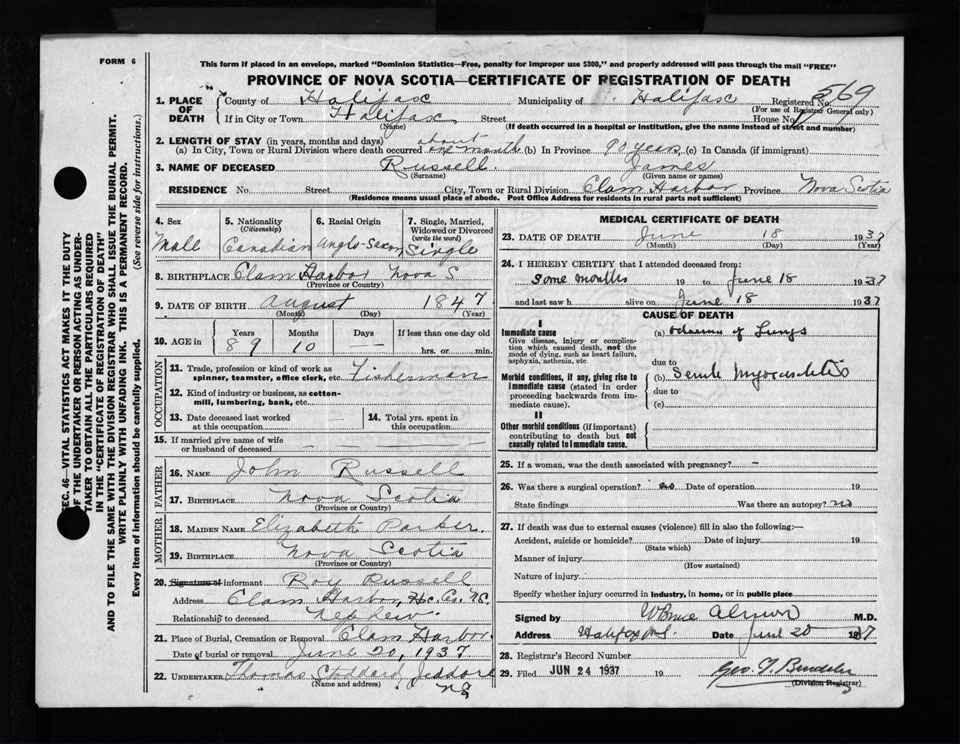 FORM 6
This form if placed in an envelope, marked "Dominion Statistics—Free, penalty for improper use $300," and properly addressed will pass through the mail "FREE"
PROVINCE OF NOVA SCOTIA—CERTIFICATE OF REGISTRATION OF DEATH
1. PLACE OF DEATH
County of Halifax Municipality of Halifax Registered No. 569
(For use of Registrar General only)
If in City or Town Halifax Street House No.
(Name) (If death occurred in a hospital or institution, give the name instead of street and number)
2. LENGTH OF STAY (in years, months and days)
(a) In City, Town or Rural Division where death occurred about one month (b) In Province 90 years (c) In Canada (if immigrant)
3. NAME OF DECEASED Russell James
(Surname) (Given name or names)
RESIDENCE No. Street City, Town or Rural Division Clam Harbor Province Nova Scotia
(Residence means usual place of abode. Post Office Address for residents in rural parts not sufficient)
4. Sex Male
5. Nationality (Citizenship) Canadian
6. Racial Origin Anglo-Saxon
7. Single, Married, Widowed or Divorced (write the word) Single
8. BIRTHPLACE Clam Harbor Nova S
(Province or Country)
9. DATE OF BIRTH August 1847
(Month) (Day) (Year)
10. AGE Years 89 Months 10 Days — If less than one day old hrs. or min.
OCCUPATION
11. Trade, profession or kind of work as spinner, teamster, office clerk, etc. Fisherman
12. Kind of industry or business, as cotton-mill, lumbering, bank, etc.
13. Date deceased last worked at this occupation
14. Total yrs. spent in this occupation
15. If married give name of wife or husband of deceased
FATHER
16. NAME John Russell
17. BIRTHPLACE Nova Scotia
(Province or Country)
MOTHER
18. MAIDEN NAME Elizabeth Parker
19. BIRTHPLACE Nova Scotia
(Province or Country)
20. Signature of informant Roy Russell
Address Clam Harbor, Hx. Co. N.S.
Relationship to deceased nephew
21. Place of Burial, Cremation or Removal Clam Harbor
Date of burial or removal June 20, 1937
22. UNDERTAKER Thomas Stoddard, Jeddore
(Name and address) NS
MEDICAL CERTIFICATE OF DEATH
23. DATE OF DEATH June 18 1937
(Month) (Day) (Year)
24. I HEREBY CERTIFY that I attended deceased from:
Some months 19 to June 18 1937
and last saw h alive on June 18 1937
CAUSE OF DEATH
I
Immediate cause
Give disease, injury or complication which caused death, not the mode of dying, such as heart failure, asphyxia, asthenia, etc.
(a) Oedema of Lungs
due to
Morbid conditions, if any, giving rise to immediate cause (stated in order proceeding backwards from immediate cause).
(b) Senile Myocarditis
due to
(c)
II
Other morbid conditions (if important) contributing to death but not causally related to immediate cause.
25. If a woman, was the death associated with pregnancy? —
26. Was there a surgical operation? no Date of operation 19
State findings Was there an autopsy? no
27. If death was due to external causes (violence) fill in also the following:—
Accident, suicide or homicide? Date of injury 19
(State which)
Manner of injury
(How sustained)
Nature of injury
Specify whether injury occurred in Industry, in home, or in public place
Signed by W Bruce M.D.
Address Halifax N.S. Date June 20 1937
28. Registrar's Record Number
29. Filed JUN 24 1937 19
Geo.
(Division Registrar)
SEC. 46—VITAL STATISTICS ACT MAKES IT THE DUTY
OF THE UNDERTAKER OR PERSON ACTING AS UNDER-
TAKER TO OBTAIN ALL THE PARTICULARS REQUIRED
IN THE "CERTIFICATE OF REGISTRATION OF DEATH"
AND TO FILE THE SAME WITH THE DIVISION REGISTRAR WHO SHALL ISSUE THE BURIAL PERMIT.
WRITE PLAINLY WITH UNFADING INK. THIS IS A PERMANENT RECORD.
Every item of information should be carefully supplied. (See reverse side for instructions.)